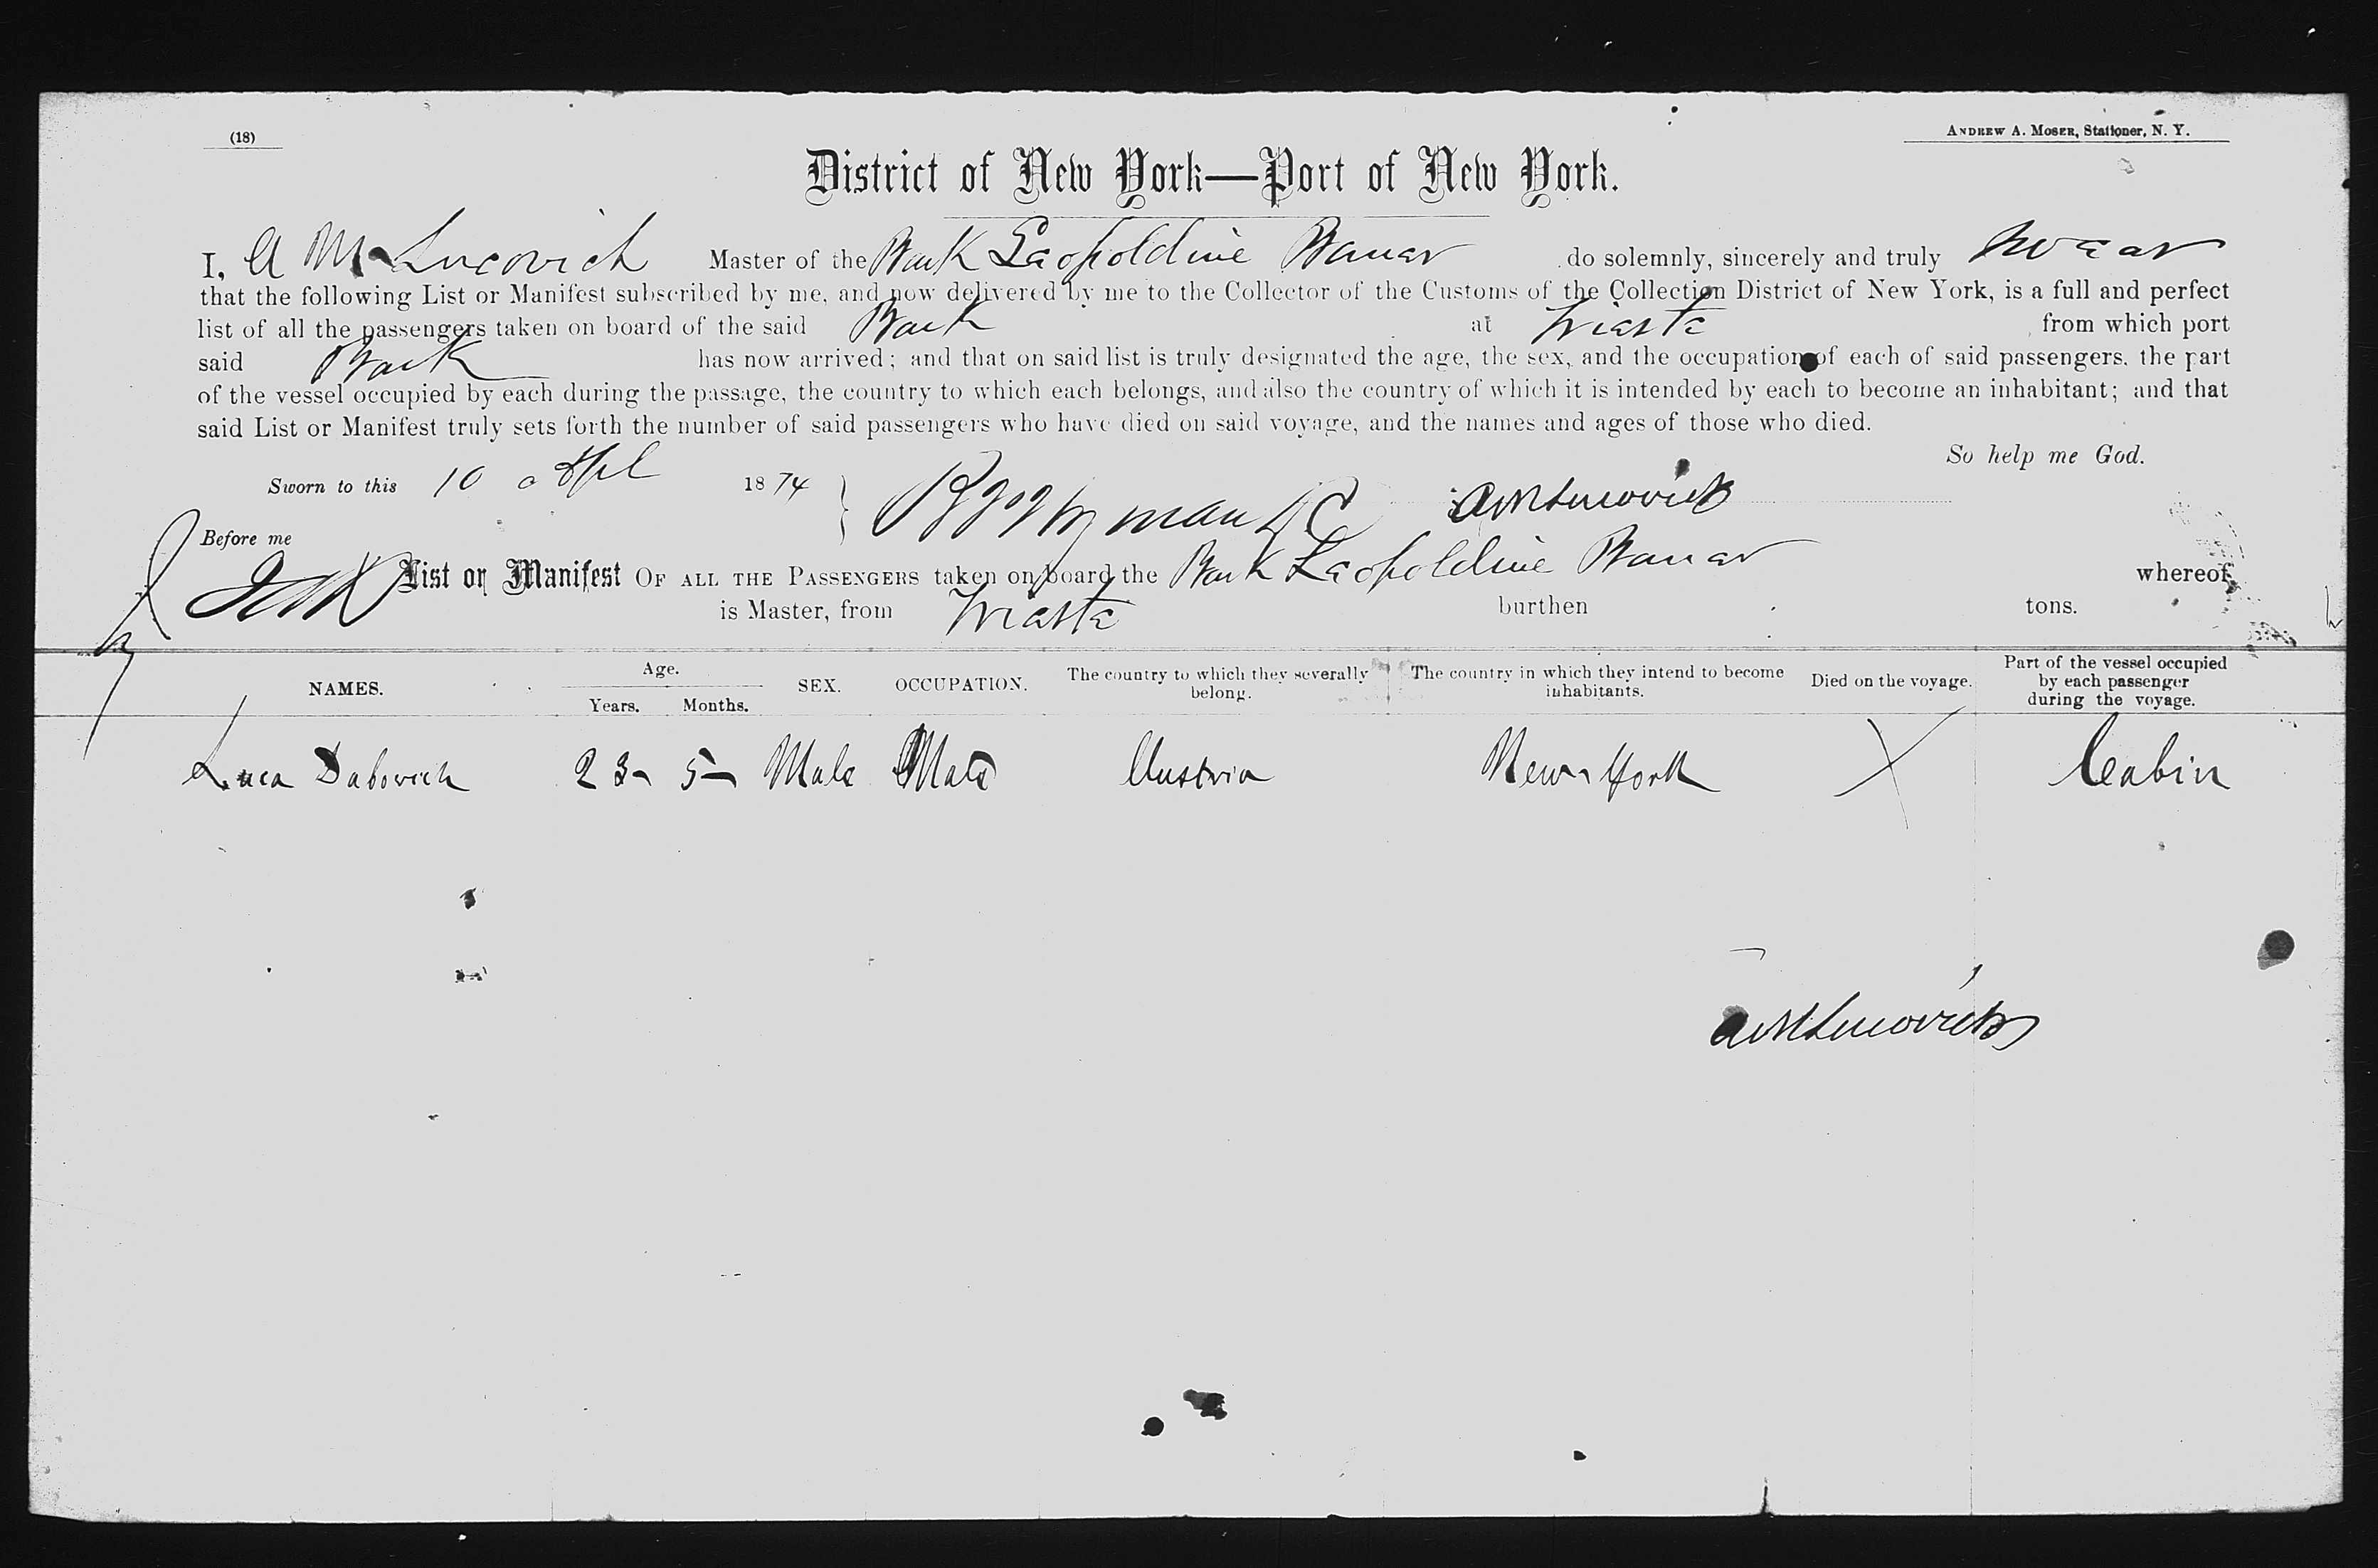 (18)
ANDREW A. MOSER, Stationer, N. Y.
District of New York—Port of New York.
I, A M Lucovich Master of the Bark Leopoldine Bauer do solemnly, sincerely and truly swear
that the following List or Manifest subscribed by me, and now delivered by me to the Collector of the Customs of the Collection District of New York, is a full and perfect
list of all the passengers taken on board of the said Bark at Trieste from which port
said Bark has now arrived; and that on said list is truly designated the age, the sex, and the occupation of each of said passengers, the part
of the vessel occupied by each during the passage, the country to which each belongs, and also the country of which it is intended by each to become an inhabitant; and that
said List or Manifest truly sets forth the number of said passengers who have died on said voyage, and the names and ages of those who died.
So help me God.
Sworn to this 10 Apl 1874
A M Lucovich
Before me
List or Manifest OF ALL THE PASSENGERS taken on board the Bark Leopoldine Bauer whereof
is Master, from Trieste burthen tons.
NAMES. Age. Years. Months. SEX. OCCUPATION. The country to which they severally belong. The country in which they intend to become inhabitants. Died on the voyage. Part of the vessel occupied by each passenger during the voyage.
Luca Dabovich 23 5 Male Mate Austria New York X Cabin
A M Lucovich